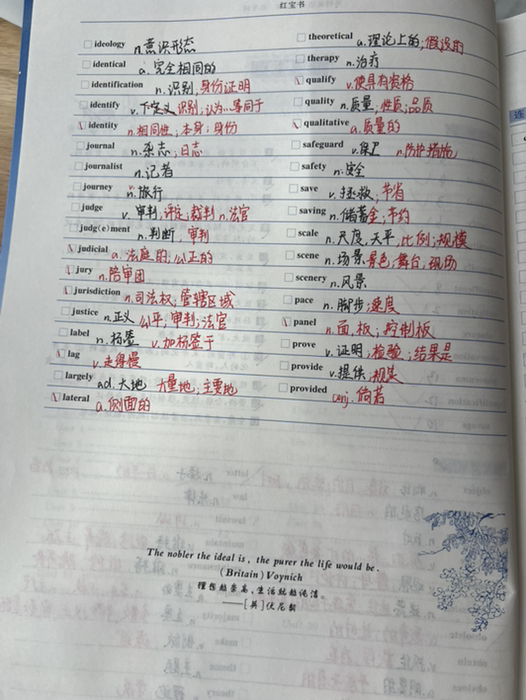 红宝书
ideology n.意识形态
identical a.完全相同的
identification n.识别,身份证明
identify v.下定义 识别,认为…等同于
identity n.相同性;本身;身份
journal n.杂志;日志
journalist n.记者
journey n.旅行
judge v.审判,评定;裁判 n.法官
judg(e)ment n.判断,审判
judicial a.法庭的;公正的
jury n.陪审团
jurisdiction n.司法权,管辖区域
justice n.正义 公平,审判;法官
label n.标签 v.加标签于
lag v.走得慢
largely ad.大地 大量地;主要地
lateral a.侧面的
theoretical a.理论上的;假设的
therapy n.治疗
qualify v.使具有资格
quality n.质量,性质;品质
qualitative a.质量的
safeguard v.保卫 n.防护措施
safety n.安全
save v.拯救;节省
saving n.储蓄金;节约
scale n.尺度,天平,比例;规模
scene n.场景,景色;舞台,现场
scenery n.风景
pace n.脚步;速度
panel n.面,板;控制板
prove v.证明;检验;结果是
provide v.提供;规定
provided conj.倘若
The nobler the ideal is, the purer the life would be.
(Britain) Voynich
理想愈崇高,生活就愈纯洁。
——[英]伏尼契